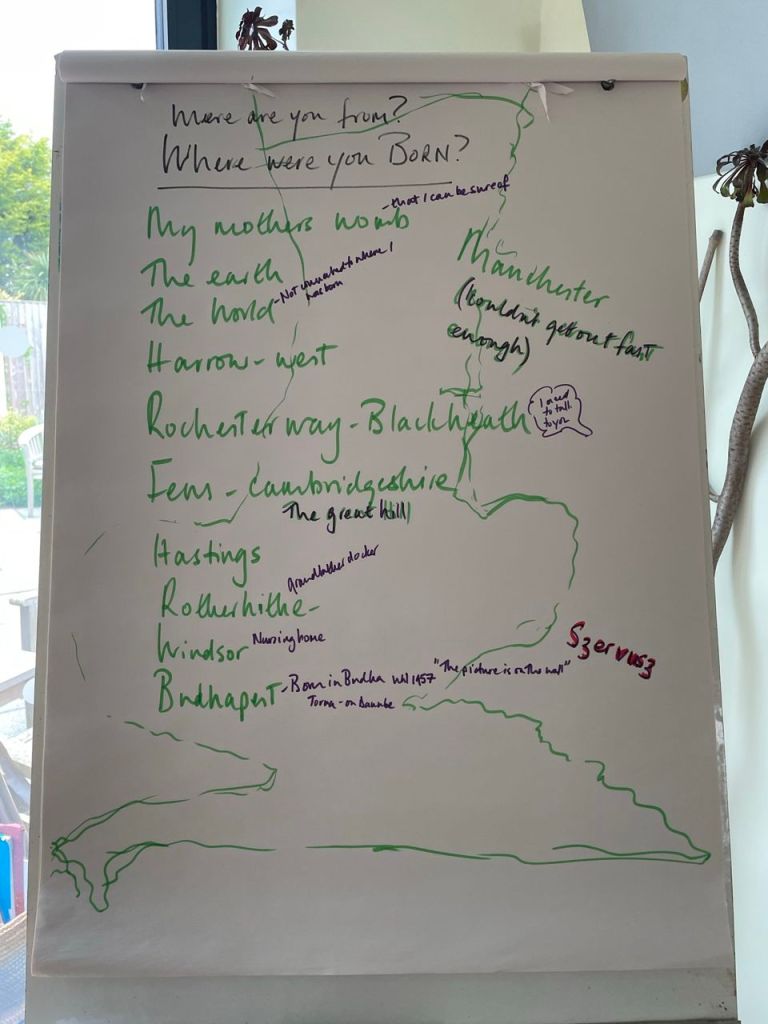 Where are you from?
Where were you BORN?
My mothers womb
- that I can be sure of
The earth
The World
- Not connected to where I
was born
Manchester
(Couldn't get out fast
enough)
Harrow - west
Rochester way - Blackheath
I need
to talk
to you
Fens - Cambridgeshire
The great hall
Hastings
Rotherhithe -
grandfather docker
Windsor
Nursing home
Szervusz
Budhapest
- Born in Budha until 1957 "The picture is on the wall"
on Danube